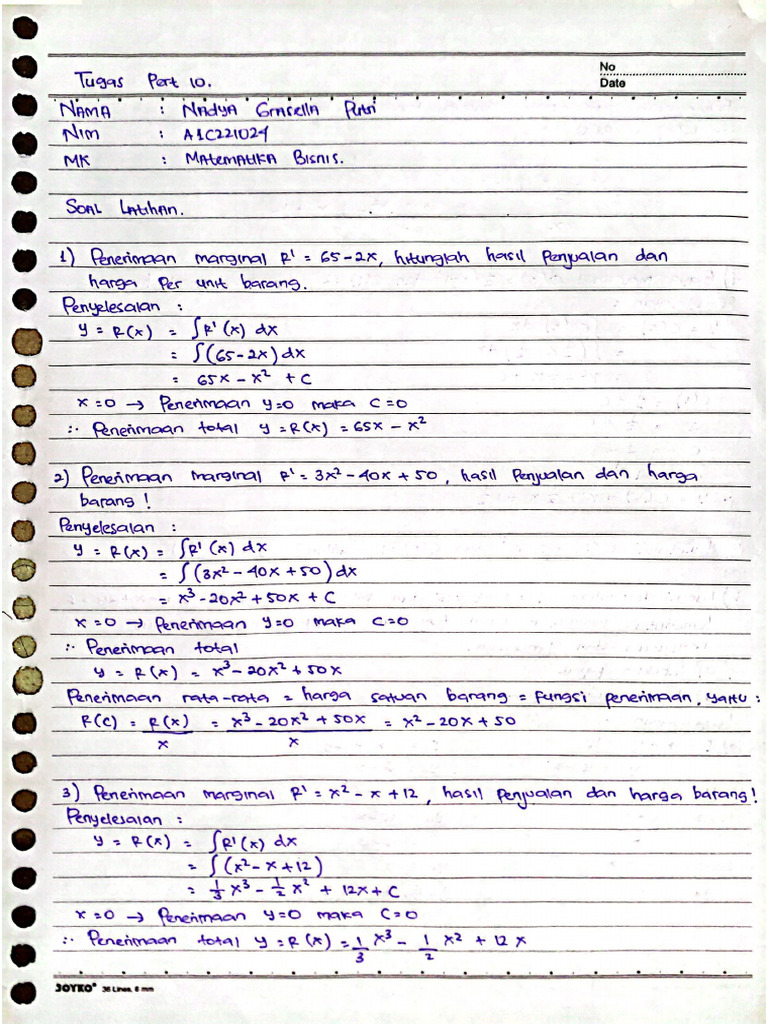 No
Date
Tugas Pert 10.
Nama : Nadya Grasella Putri
Nim : A1C221024
MK : Matematika Bisnis.
Soal Latihan.
1) Penerimaan marginal R' = 65-2x, hitunglah hasil Penjualan dan
harga Per unit barang.
Penyelesaian :
y = R(x) = ∫R'(x) dx
= ∫(65-2x)dx
= 65x - x² + C
x=0 → Penerimaan y=0 maka C=0
∴ Penerimaan total y=R(x) = 65x - x²
2) Penerimaan marginal R' = 3x² - 40x + 50, hasil Penjualan dan harga
barang!
Penyelesaian :
y = R(x) = ∫R'(x) dx
= ∫(3x² - 40x + 50)dx
= x³ - 20x² + 50x + C
x=0 → Penerimaan y=0 maka C=0
∴ Penerimaan total
y = R(x) = x³ - 20x² + 50x
Penerimaan rata-rata = harga satuan barang = Fungsi penerimaan, yaitu :
R(c) = R(x)/x = x³ - 20x² + 50x/x = x² - 20x + 50
3) Penerimaan marginal R' = x² - x + 12, hasil Penjualan dan harga barang!
Penyelesaian :
y = R(x) = ∫R'(x) dx
= ∫(x² - x + 12)
= 1/3 x³ - 1/2 x² + 12x + C
x=0 → Penerimaan y=0 maka C=0
∴ Penerimaan total y=R(x) = 1/3 x³ - 1/2 x² + 12x
JOYKO® 36 Lines, 6 mm